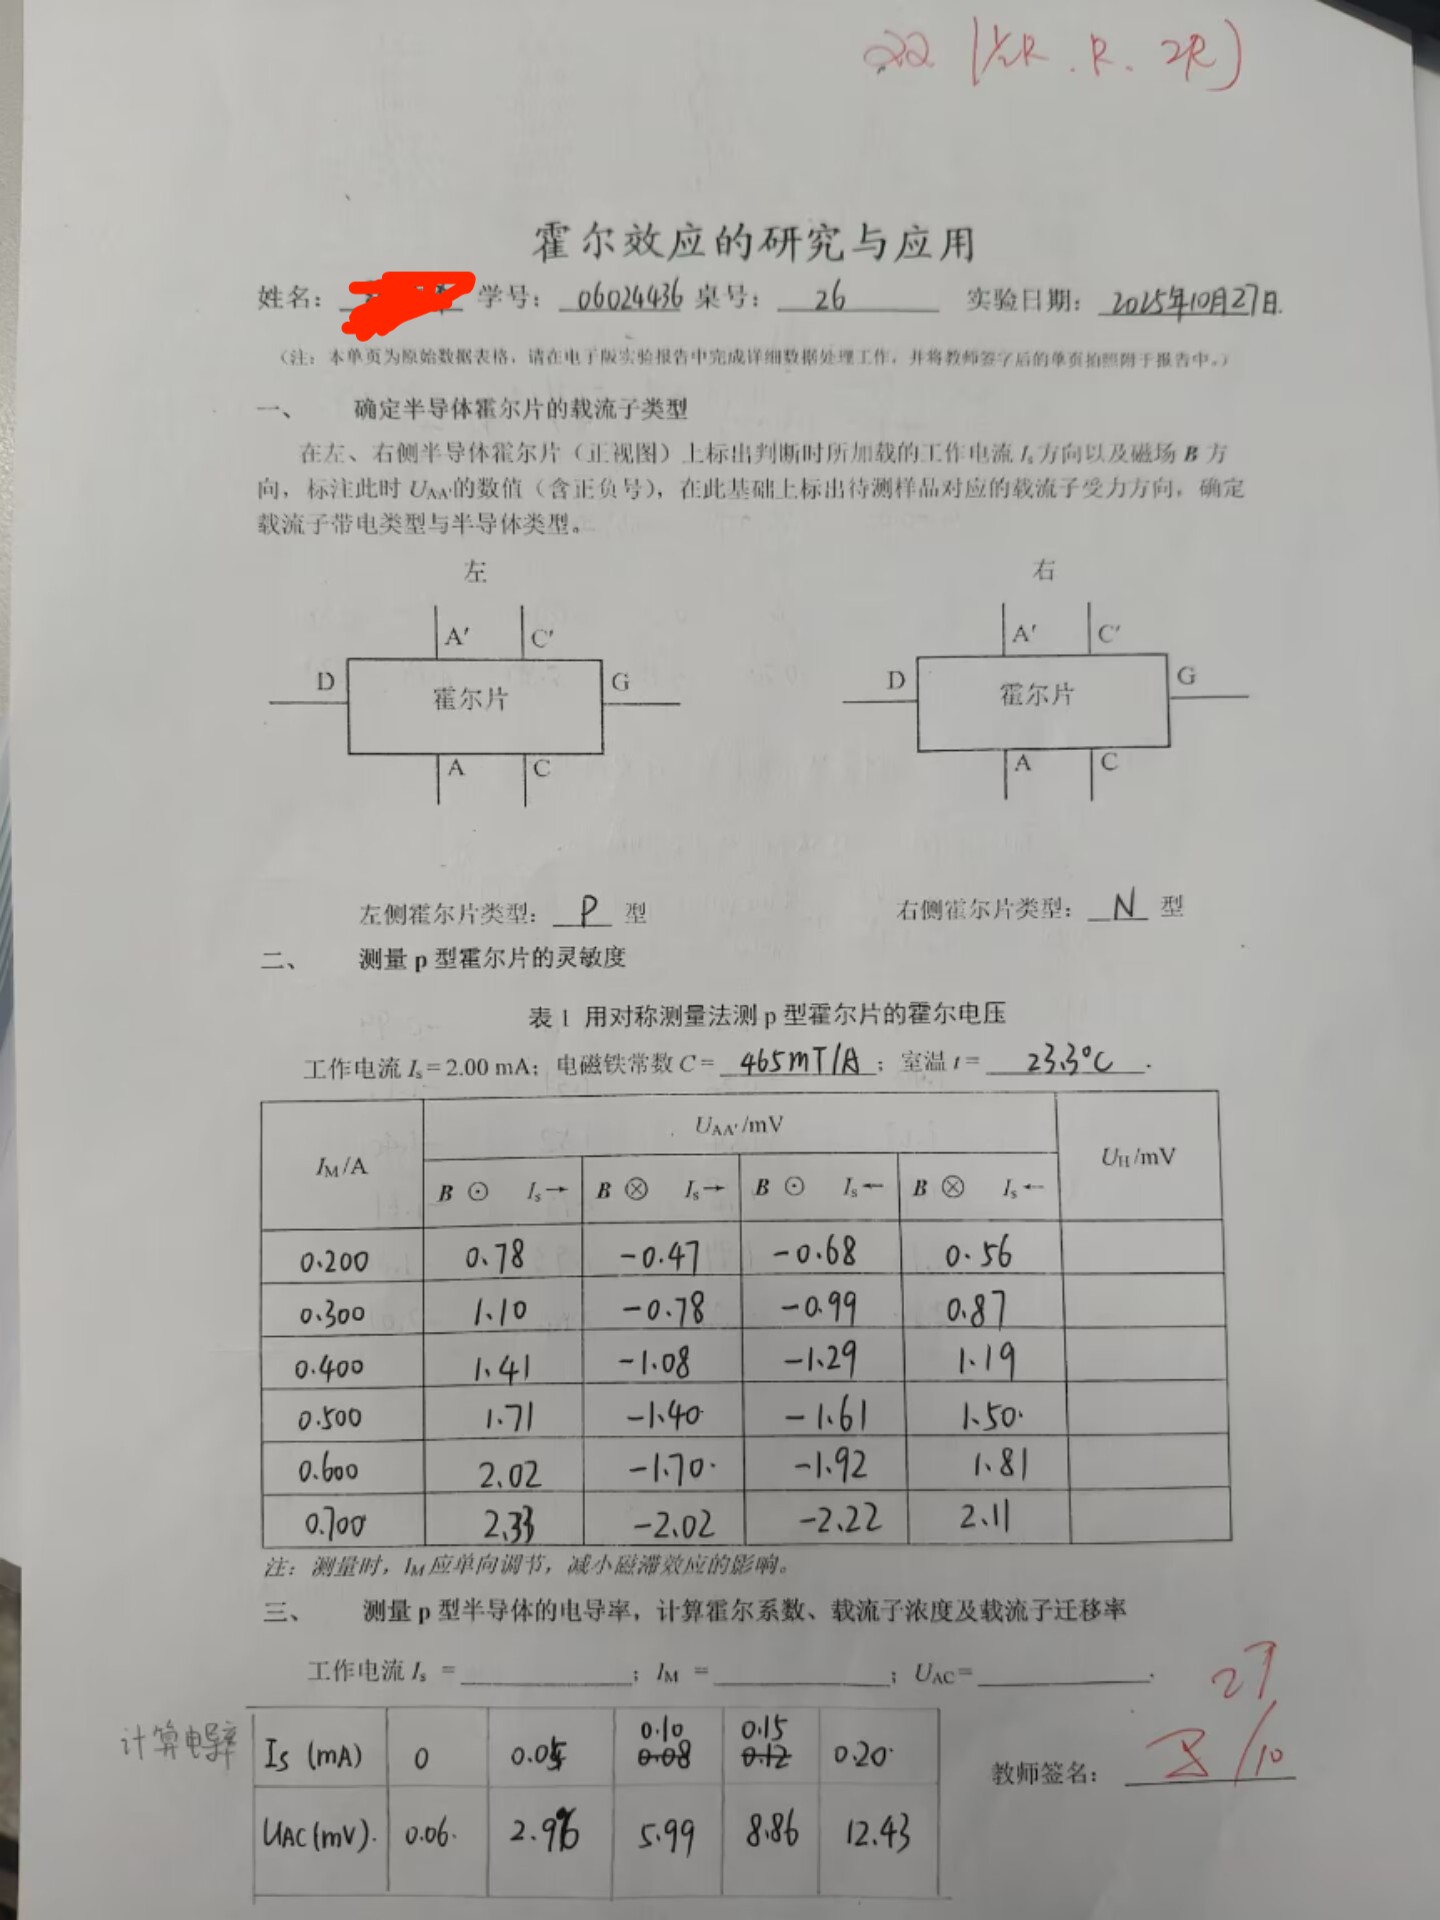 22 (½R . R . 2R)
霍尔效应的研究与应用
姓名： 学号：06024436 桌号：26 实验日期：2025年10月27日.
（注：本单页为原始数据表格，请在电子版实验报告中完成详细数据处理工作，并将教师签字后的单页拍照附于报告中。）
一、 确定半导体霍尔片的载流子类型
在左、右侧半导体霍尔片（正视图）上标出判断时所加载的工作电流 Is 方向以及磁场 B 方
向，标注此时 UAA'的数值（含正负号），在此基础上标出待测样品对应的载流子受力方向，确定
载流子带电类型与半导体类型。
左 右
A' C' A' C'
D 霍尔片 G D 霍尔片 G
A C A C
左侧霍尔片类型：P 型 右侧霍尔片类型：N 型
二、 测量 p 型霍尔片的灵敏度
表 1 用对称测量法测 p 型霍尔片的霍尔电压
工作电流 Is = 2.00 mA；电磁铁常数 C = 465mT/A；室温 t = 23.3°C.
IM/A UAA'/mV UH/mV
B ⊙ Is→ B ⊗ Is→ B ⊙ Is← B ⊗ Is←
0.200 0.78 -0.47 -0.68 0.56
0.300 1.10 -0.78 -0.99 0.87
0.400 1.41 -1.08 -1.29 1.19
0.500 1.71 -1.40 -1.61 1.50.
0.600 2.02 -1.70. -1.92 1.81
0.700 2.33 -2.02 -2.22 2.11
注：测量时，IM 应单向调节，减小磁滞效应的影响。
三、 测量 p 型半导体的电导率，计算霍尔系数、载流子浓度及载流子迁移率
工作电流 Is = ；IM = ；UAC= .
27
计算电导率 Is (mA) 0 0.05 0.10 0.08 0.15 0.12 0.20.
教师签名： /10
UAC(mV). 0.06. 2.96 5.99 8.86 12.43